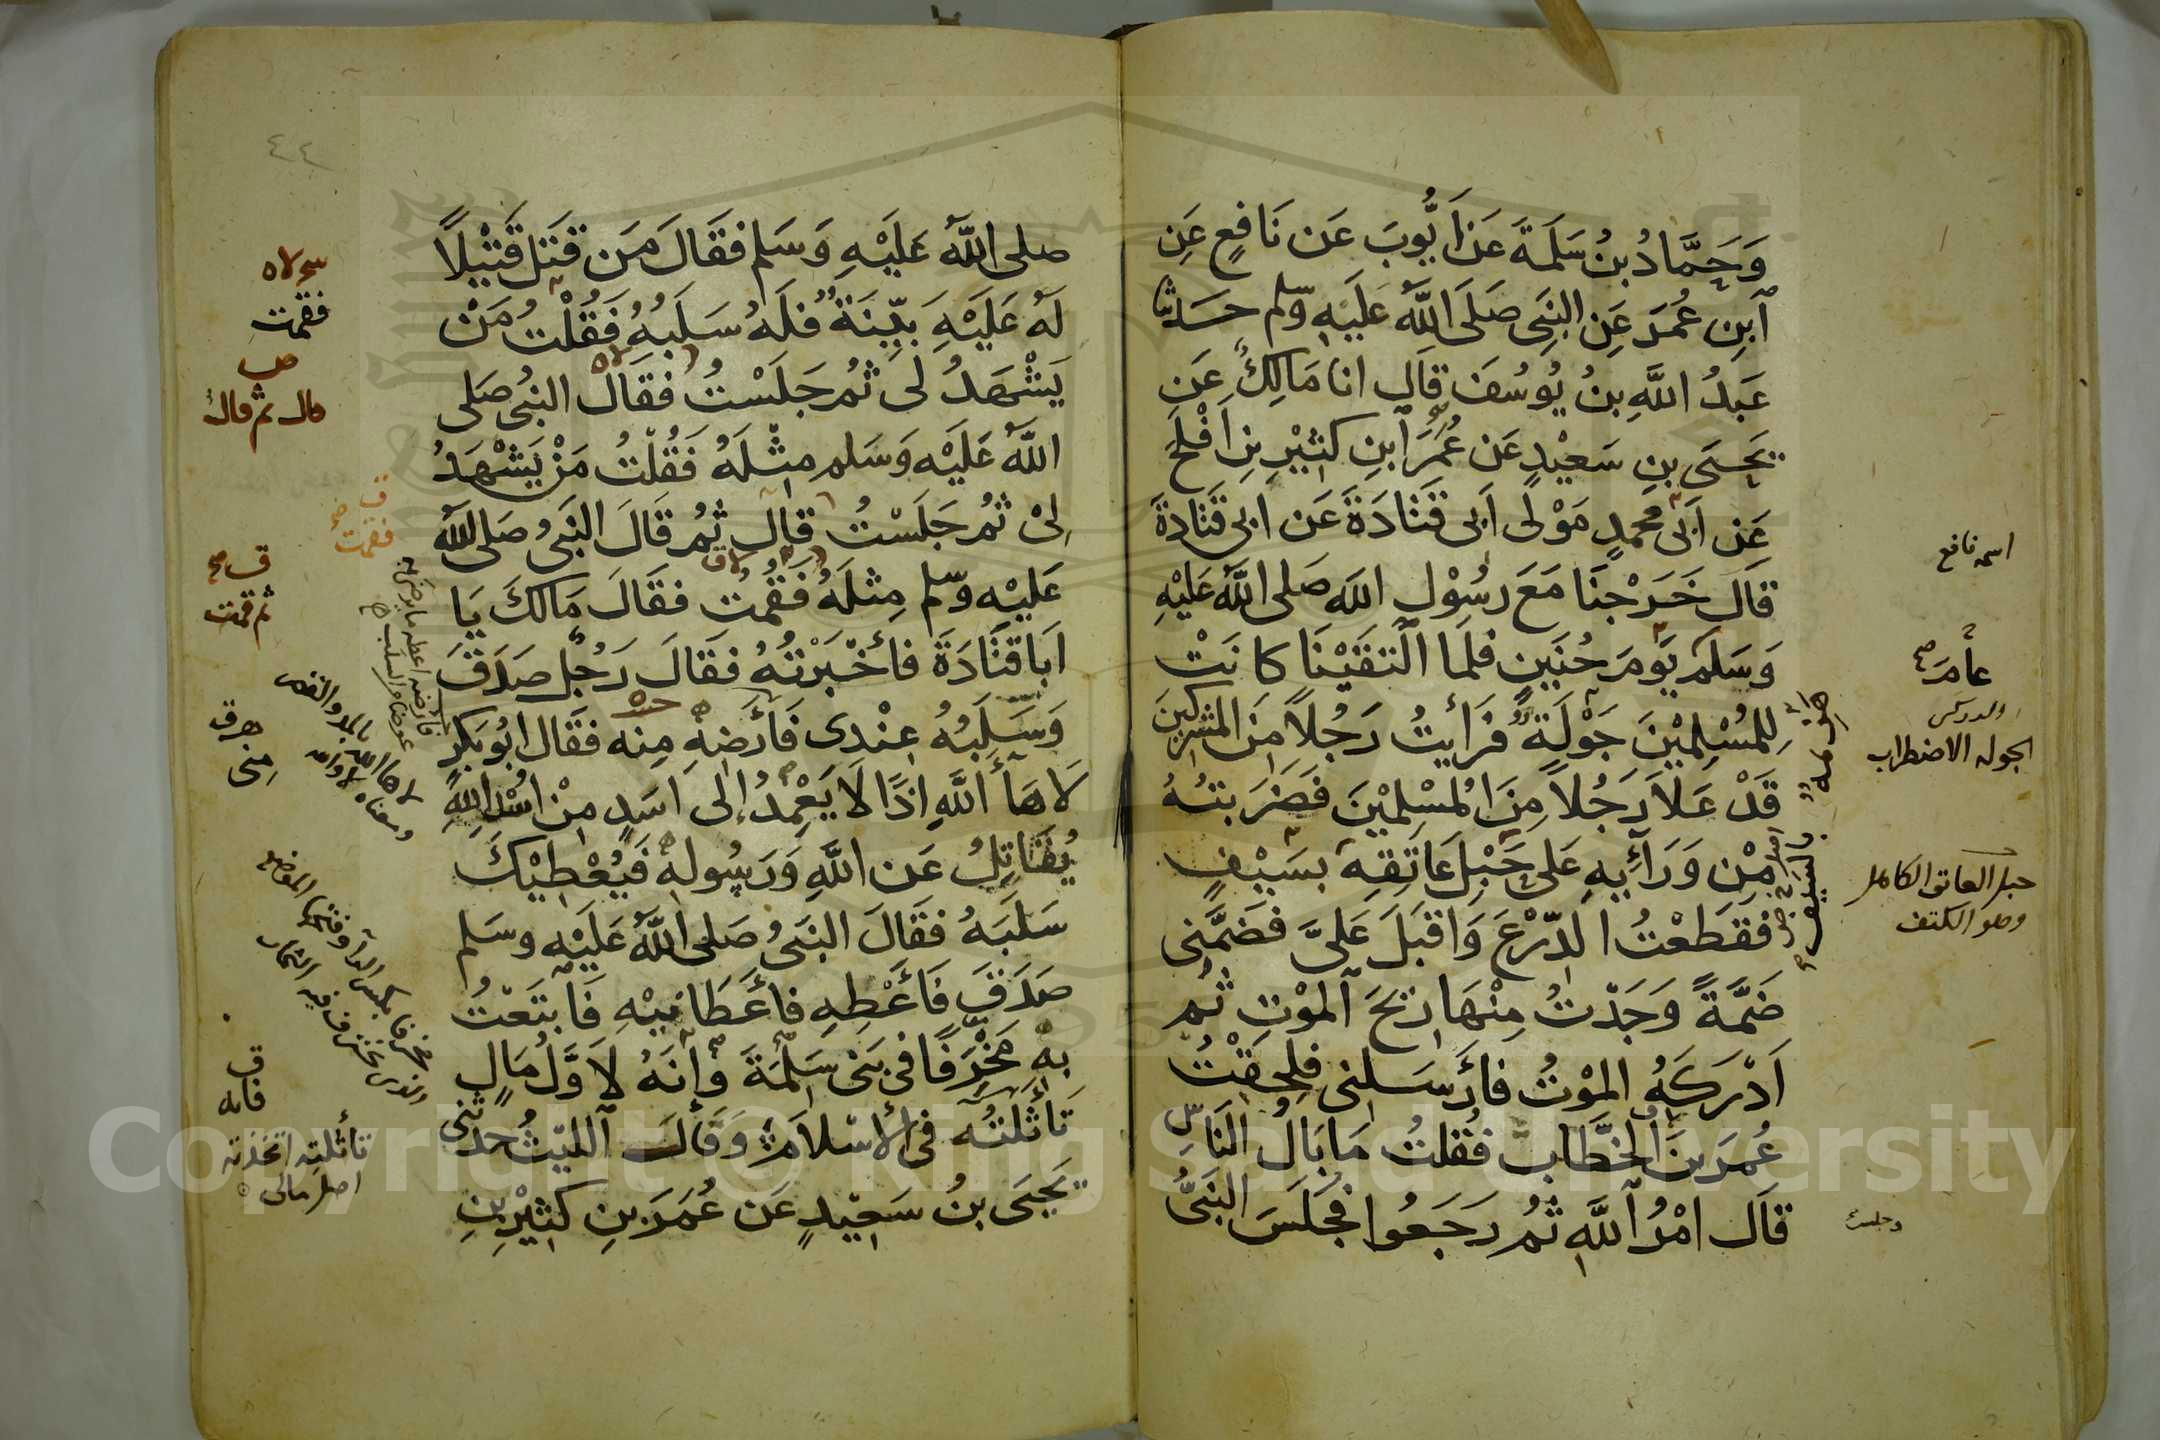 وَحَمَّادُ بنُ سَلَمَةَ عَن اَيُّوبَ عَن نَافِعٍ عَنِ
ابنِ عُمَرَ عَنِ النَّبِيِ صَلَى اللَّهُ عَلَيْهِ وسلم حَدثنا
عَبدُ اللَّهِ بنُ يُوسُفَ قَالَ انا مَالِكٌ عَن
يَحيَى بنِ سَعِيْدٍ عَن عُمَرَ ابنِ كَثِيْرِ بنِ اَفْلَحَ
عَن اَبى محمدٍ مَوْلَى اَبى قَتَادَةَ عَن ابى قَتَادَةَ
قَالَ خَرَجْنَا مَعَ رسُوْلِ اللهِ صَلى اللَّهُ عَلَيْهِ
وَسَلَم يَومَ حُنَينٍ فلما التَقَيْنَا كانَتْ
لِلمُسْلِمْيْنَ جَوْلَةٌ فرَايتُ رَجُلاً مِنَ المشركينَ
قَدْ عَلاَ رَجُلاً مِنَ المُسْلِمْيْنَ فَضَرَبتُهُ
مِنْ وَرَائِهِ عَلى حَبْلِ عَاتِقِهِ بسَيْفٍ
فقَطعْتُ الدِّرْعَ وَاقبَلَ عَلىَّ فضَمَّنِى
ضَمَّةً وَجَدْتُ مِنْهَا رِيحَ الموْتِ ثُم
اَدْرَكَهُ الموْتُ فأرْسَلنِى فلحِقتُ
عُمَرَ بنَ الخَطَّابِ فقُلتُ مَا بَالُ النَاسِ
قاَلَ امْرُ اللَّهِ ثُم رَجَعُوا فجَلَسَ النبَىُّ
اسمه نافع
عامَ
الجوله الاضطراب
حبل العاتق الكاهل
وهو الكتف
بالسيف
وجلس
صلى اللَّهُ عَلَيْهِ وَسَلم فقَالَ مَن قتَلَ قَتْيْلاً
لَهُ عَلَيْهِ بيِّنَةٌ فلَهُ سَلَبُهُ فَقُلْتُ مَنْ
يَشْهَدُ لى ثمُ جَلَسْتُ فقَالَ النبُى صَلى
اللَّهُ عَلَيْهِ وَسَلم مِثْلَهُ فَقُلْتُ مَنْ يَشْهَدُ
لِىْ ثمُ جَلَسْتُ قالَ ثُم قَالَ النَبىُ صَلى اللهُ
عَليْهِ وسلم مِثلَهُ فَقُمْتُ فقَالَ مَالكَ يَا
اَبَا قتَادَةَ فأخْبَرْتُهُ فقَالَ رَجُلٌ صَدَقَ
وَسَلَبُهُ عِنْدِى فَأَرْضِهِ مِنه فقَالَ ابُو بَكرٍ
لَاهَا أللَّهِ اذًا لَا يَعْمِدُ إلى اَسَدٍ مِنْ اسُدِ اللهِ
يُقَاتِلُ عَن اللَّهِ وَرَسُولهِ فَيُعْطِيْكَ
سَلَبَهُ فقَالَ النبَىُ صَلى اللَّهُ عَلَيْهِ وسَلم
صَدَقَ فَأَعْطِهِ فأعْطَانِيْهِ فَابتَعْتُ
بهِ مَخْرَفًا فى بَنى سَلِمَةَ وَإنَهُ لاَوَّلُ مَالٍ
تَأَثَّلتُهُ فى الأسْلاَمِ وَقَالَ اللَيْثُ حَدثنى
يَحيَى بنُ سَعِيْدٍ عَن عُمَرَ بنِ كَثِيْرِ بنِ
٤٤
فقمت
قال ثم قال
فقمت
ثم قمت
فأرضه اعطه ما يرضى به
عوضا عن السلب
لاها الله بالمد والقصر
ومعناه لا والله
منى
مخرفا بكسر الراء وفتحها الموضع
الذى تخترف فيه الثمار
فانه
تأثلته اتخذته
اصل مالى
Copyright © King Saud University